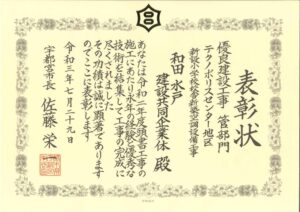 表彰状
優良建設工事 管部門
テクノポリスセンター地区
新設小学校校舎新築空調設備工事
和田 水戸
建設共同企業体 殿
あなたは令和二年度頭書工事の
施工にあたり永年の経験と優秀な
技術を結集して工事の完成に
尽くされました
その功績は誠に顕著であります
のでここに表彰します
令和三年七月二十九日
宇都宮市長 佐藤栄一